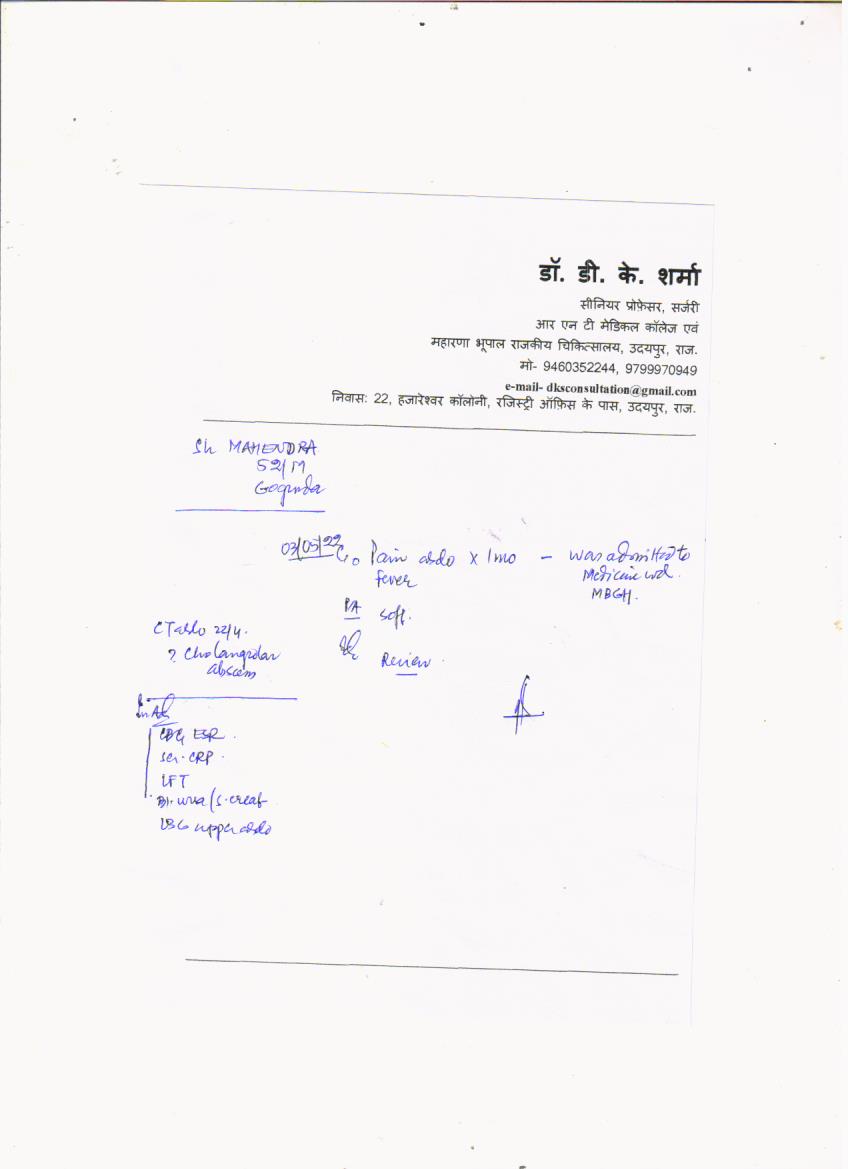 डॉ. डी. के. शर्मा
सीनियर प्रोफ़ेसर, सर्जरी
आर एन टी मेडिकल कॉलेज एवं
महाराणा भूपाल राजकीय चिकित्सालय, उदयपुर, राज.
मो- 9460352244, 9799970949
e-mail- dksconsultation@gmail.com
निवास: 22, हजारेश्वर कॉलोनी, रजिस्ट्री ऑफ़िस के पास, उदयपुर, राज.
Sh MAHENDRA
52/M
Gogunda
03/05/22 C/o Pain abdo x 1mo - was admitted to
fever Medicine wd.
MBGH.
PA soft.
CT abdo 22/4.
? Cholangiolar
abscess
Review.
CBC, ESR.
Ser. CRP.
LFT
Bl. urea/S. creat
USG upper abdo